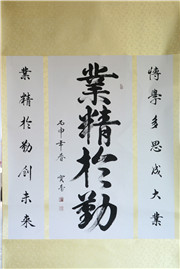 博學多思成大業
業精於勤
丙申年春
業精於勤創未來